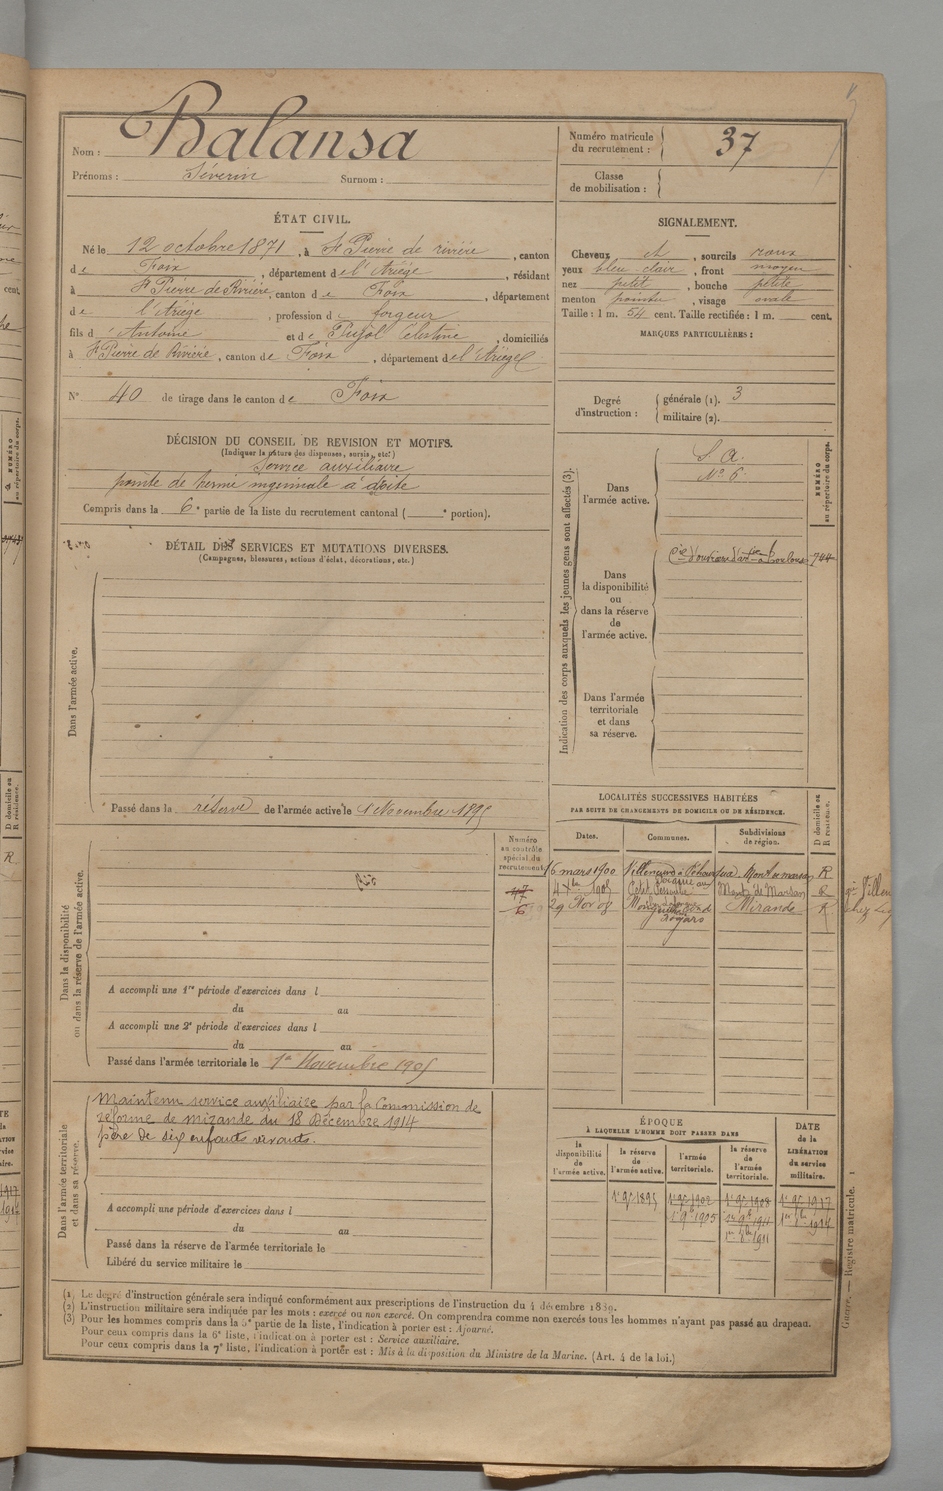 Nom : Balansa
Prénoms : Séverin Surnom :
Numéro matricule du recrutement : 37
Classe de mobilisation :
ÉTAT CIVIL.
Né le 12 octobre 1871, à St Pierre de rivière, canton
de Foix, département de l'Ariège, résidant
à St Pierre de Rivière, canton de Foix, département
de l'Ariège, profession de forgeur
fils d'Antoine et de Pujol Célestine, domiciliés
à St Pierre de Rivière, canton de Foix, département de l'Ariège
N° 40 de tirage dans le canton de Foix
SIGNALEMENT.
Cheveux et, sourcils roux
yeux bleu clair, front moyen
nez petit, bouche petite
menton pointu, visage ovale
Taille : 1 m. 54 cent. Taille rectifiée : 1 m. cent.
MARQUES PARTICULIÈRES :
Degré d'instruction : générale (1). 3
militaire (2).
DÉCISION DU CONSEIL DE REVISION ET MOTIFS.
(Indiquer la nature des dispenses, sursis, etc.)
Service auxiliaire
pointe de hernie inguinale à droite
Compris dans la 6e partie de la liste du recrutement cantonal ( e portion).
DÉTAIL DES SERVICES ET MUTATIONS DIVERSES.
(Campagnes, blessures, actions d'éclat, décorations, etc.)
Dans l'armée active.
Passé dans la réserve de l'armée active le 1 Novembre 1895
Indication des corps auxquels les jeunes gens sont affectés (3).
NUMÉRO au répertoire du corps.
Dans l'armée active.
S. A.
N° 6
Dans la disponibilité ou dans la réserve de l'armée active.
Cie d'ouvriers d'artie à Toulouse 744
Dans l'armée territoriale et dans sa réserve.
LOCALITÉS SUCCESSIVES HABITÉES
PAR SUITE DE CHANGEMENTS DE DOMICILE OU DE RÉSIDENCE.
D domicile ou R résidence.
Dates. Communes. Subdivisions de région.
16 mars 1900 Mont de marsan R
Mont de Marsan R
29 Mirande R
Dans la disponibilité ou dans la réserve de l'armée active.
Numéro au contrôle spécial du recrutement.
6
A accompli une 1re période d'exercices dans l
du au
A accompli une 2e période d'exercices dans l
du au
Passé dans l'armée territoriale le 1er Novembre 1905
Dans l'armée territoriale et dans sa réserve.
Maintenu service auxiliaire par la Commission de
réforme de mirande du 18 Décembre 1914
père de six enfants vivants.
A accompli une période d'exercices dans l
du au
Passé dans la réserve de l'armée territoriale le
Libéré du service militaire le
ÉPOQUE
À LAQUELLE L'HOMME DOIT PASSER DANS
la disponibilité de l'armée active.
la réserve de l'armée active.
l'armée territoriale.
la réserve de l'armée territoriale.
DATE de la LIBÉRATION du service militaire.
1er 9bre 1895 1er 9bre 1902 1er 9bre 1908 1er 9bre 1917
1er 9bre 1905 1er 9bre 1911
(1) Le degré d'instruction générale sera indiqué conformément aux prescriptions de l'instruction du 4 décembre 1889.
(2) L'instruction militaire sera indiquée par les mots : exercé ou non exercé. On comprendra comme non exercés tous les hommes n'ayant pas passé au drapeau.
(3) Pour les hommes compris dans la 5e partie de la liste, l'indication à porter est : Ajourné.
Pour ceux compris dans la 6e liste, l'indication à porter est : Service auxiliaire.
Pour ceux compris dans la 7e liste, l'indication à porter est : Mis à la disposition du Ministre de la Marine. (Art. 4 de la loi.)
Guerre. — Registre matricule. 1